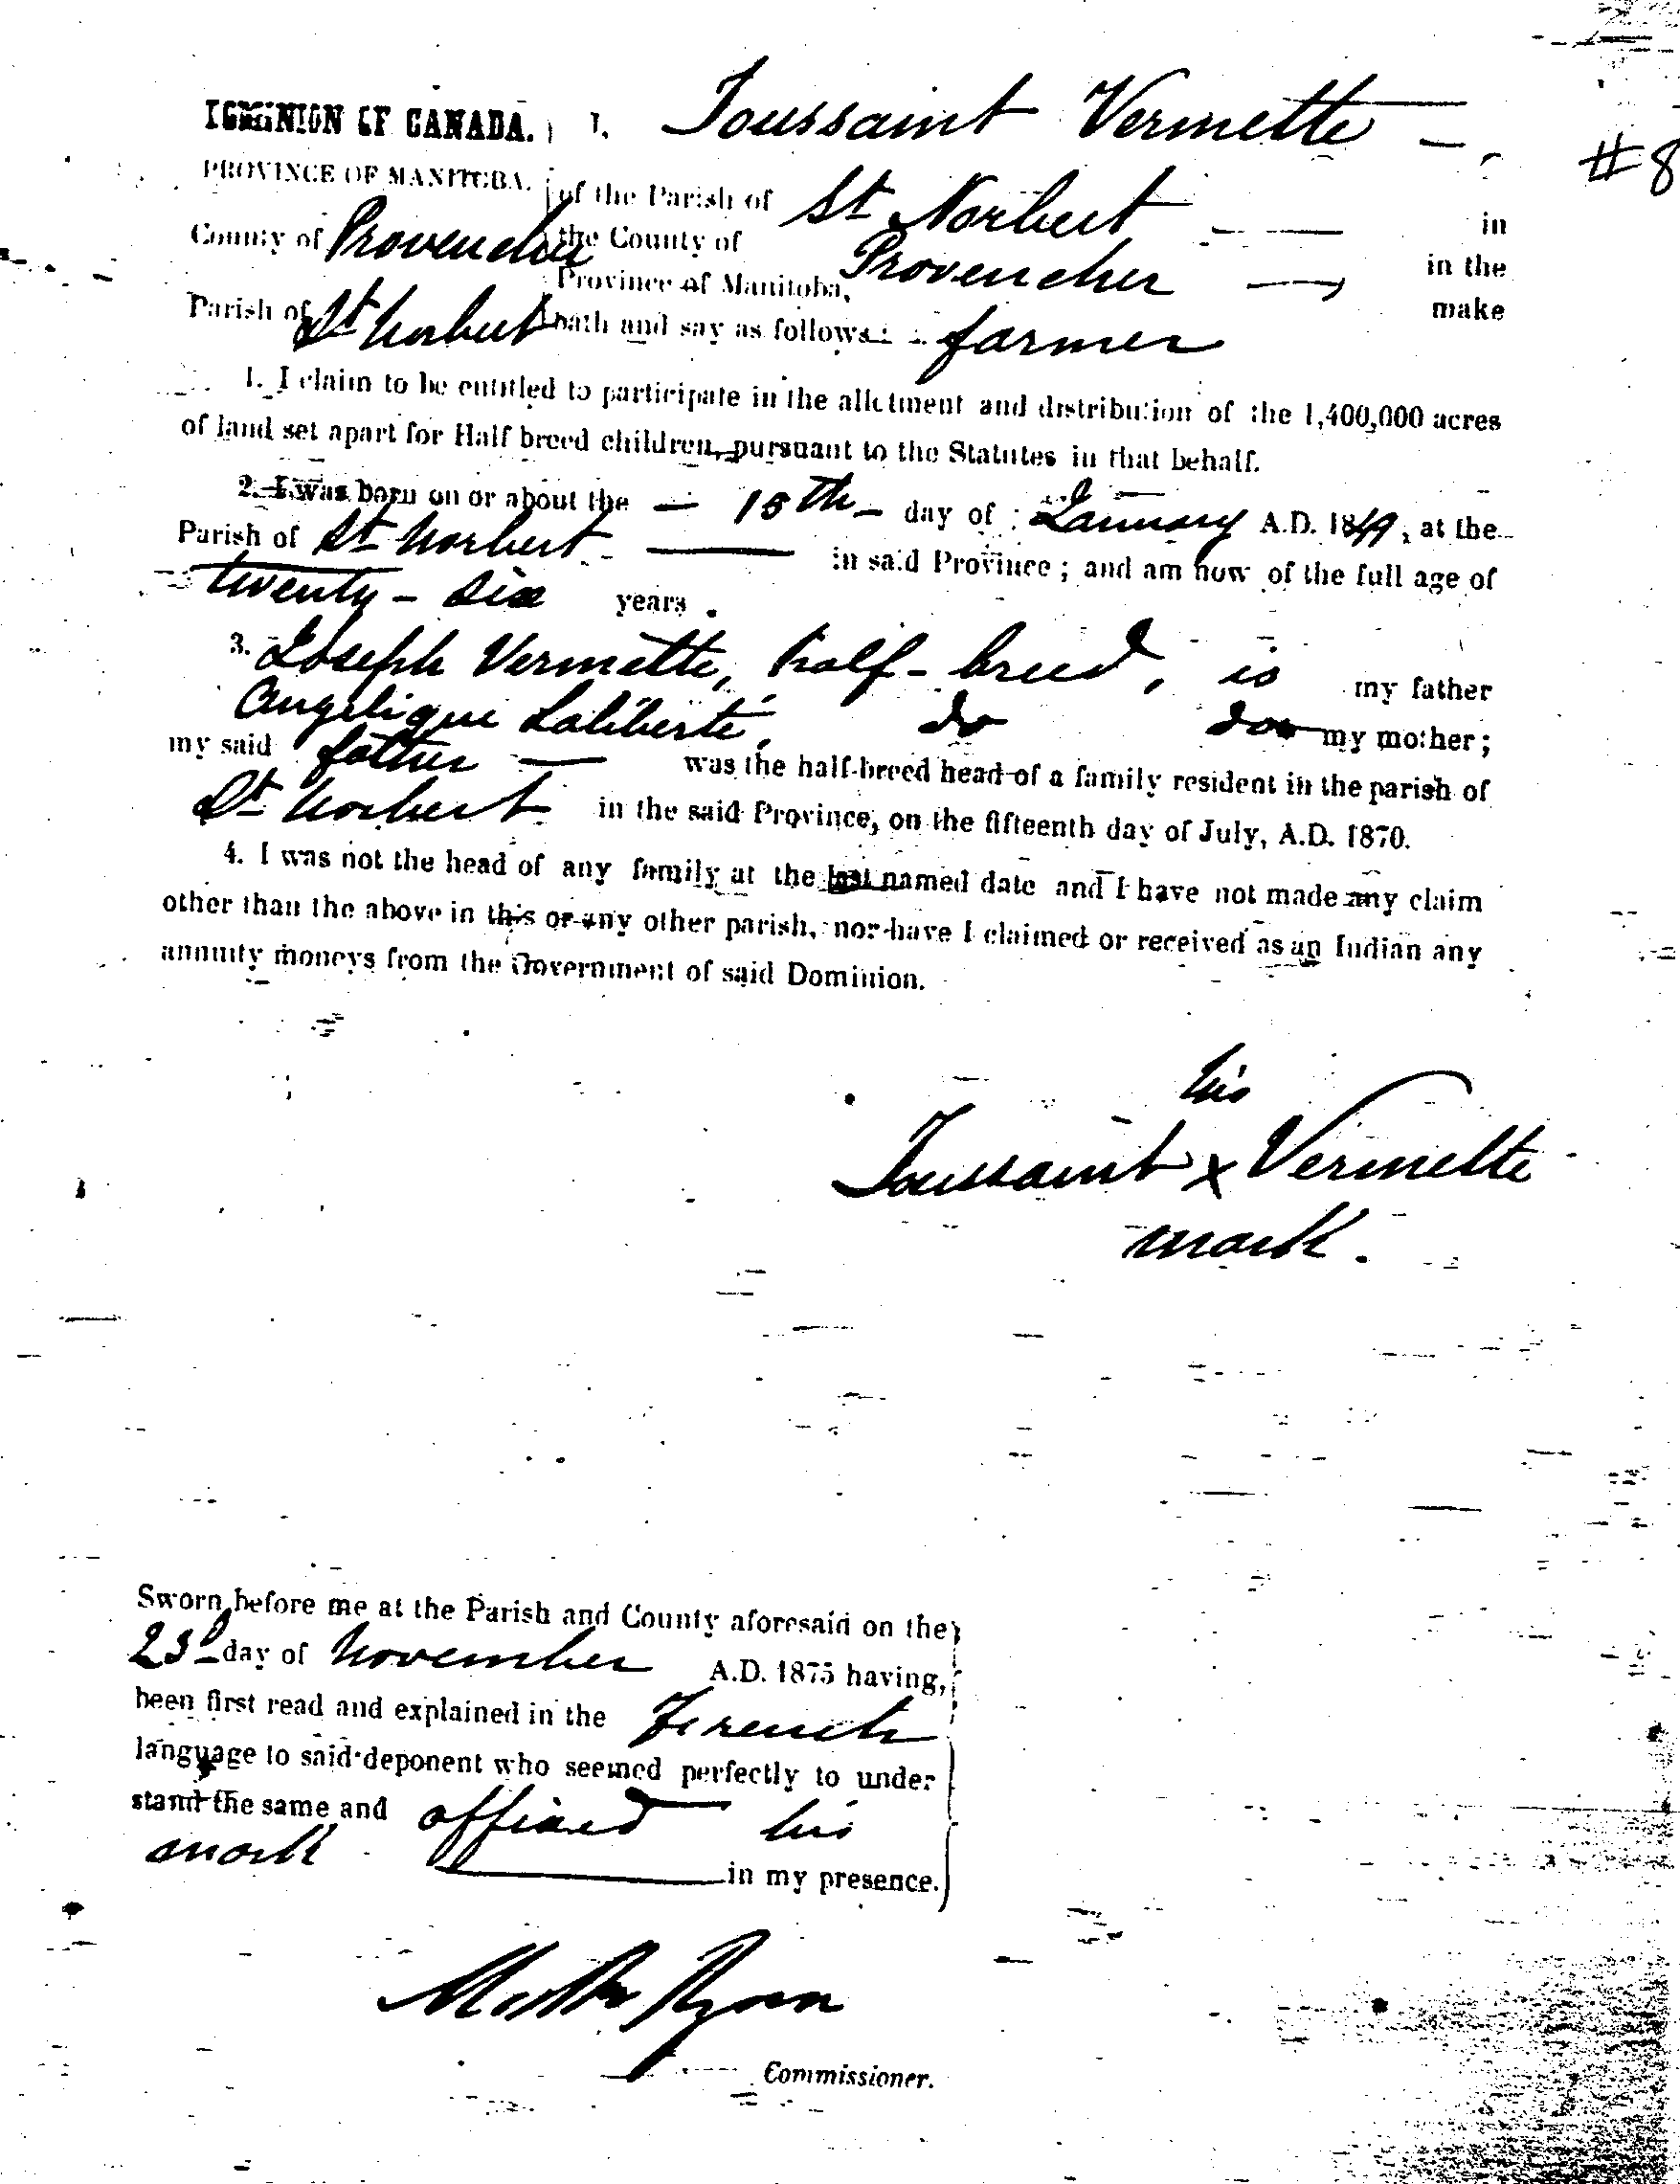 DOMINION OF CANADA. I, Toussaint Vermette
#8
PROVINCE OF MANITOBA. of the Parish of St Norbert in
County of Provencher the County of Provencher in the
Province of Manitoba, make
Parish of St Norbert oath and say as follows: farmer
1. I claim to be entitled to participate in the allotment and distribution of the 1,400,000 acres
of land set apart for Half breed children, pursuant to the Statutes in that behalf.
2. I was born on or about the — 15th — day of January A.D. 1849, at the
Parish of St Norbert in said Province; and am now of the full age of
twenty-six years.
3. Joseph Vermette, half-breed, is my father
Angelique Laliberté, do do my mother;
my said father was the half-breed head of a family resident in the parish of
St Norbert in the said Province, on the fifteenth day of July, A.D. 1870.
4. I was not the head of any family at the last named date and I have not made any claim
other than the above in this or any other parish, nor have I claimed or received as an Indian any
annuity moneys from the Government of said Dominion.
his
Toussaint x Vermette
mark.
Sworn before me at the Parish and County aforesaid on the
23d day of November A.D. 1875 having,
been first read and explained in the French
language to said deponent who seemed perfectly to under
stand the same and affixed his
mark in my presence.
Matth Ryan
Commissioner.